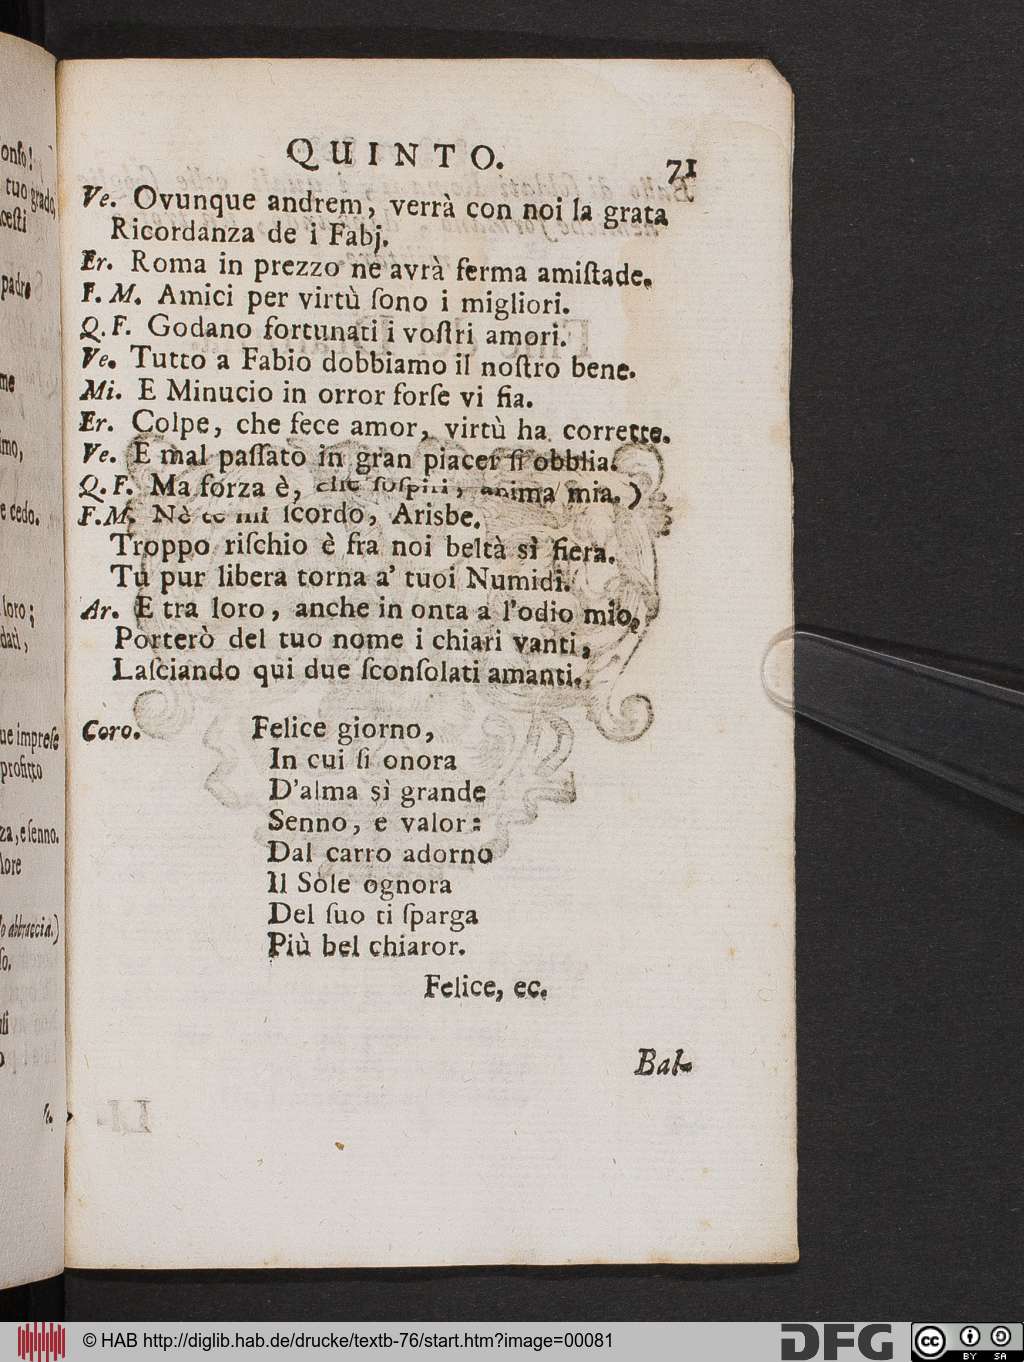 QUINTO. 71
Ve. Ovunque andrem, verrà con noi la grata
Ricordanza de i Fabj.
Er. Roma in prezzo ne avrà ferma amiſtade.
F. M. Amici per virtù ſono i migliori.
Q. F. Godano fortunati i voſtri amori.
Ve. Tutto a Fabio dobbiamo il noſtro bene.
Mi. E Minucio in orror forſe vi fia.
Er. Colpe, che fece amor, virtù ha corrette.
Ve. E mal paſſato in gran piacer ſi obblia.
Q. F. Ma forza è, che ſoſpiri, anima mia.)
F. M. Nè te mi ſcordo, Arisbe.
Troppo riſchio è fra noi beltà sì fiera.
Tu pur libera torna a' tuoi Numidi.
Ar. E tra loro, anche in onta a l'odio mio,
Porterò del tuo nome i chiari vanti,
Laſciando qui due ſconſolati amanti.
Coro. Felice giorno,
In cui ſi onora
D'alma sì grande
Senno, e valor:
Dal carro adorno
Il Sole ognora
Del ſuo ti ſparga
Più bel chiaror.
Felice, ec.
Bal-
onſo!
tuo grado,
padre
me
imo,
e cedo.
loro;
dati,
ue impreſe
profitto
za, e ſenno.
lo abbraccia.)
© HAB http://diglib.hab.de/drucke/textb-76/start.htm?image=00081
DFG
cc BY SA